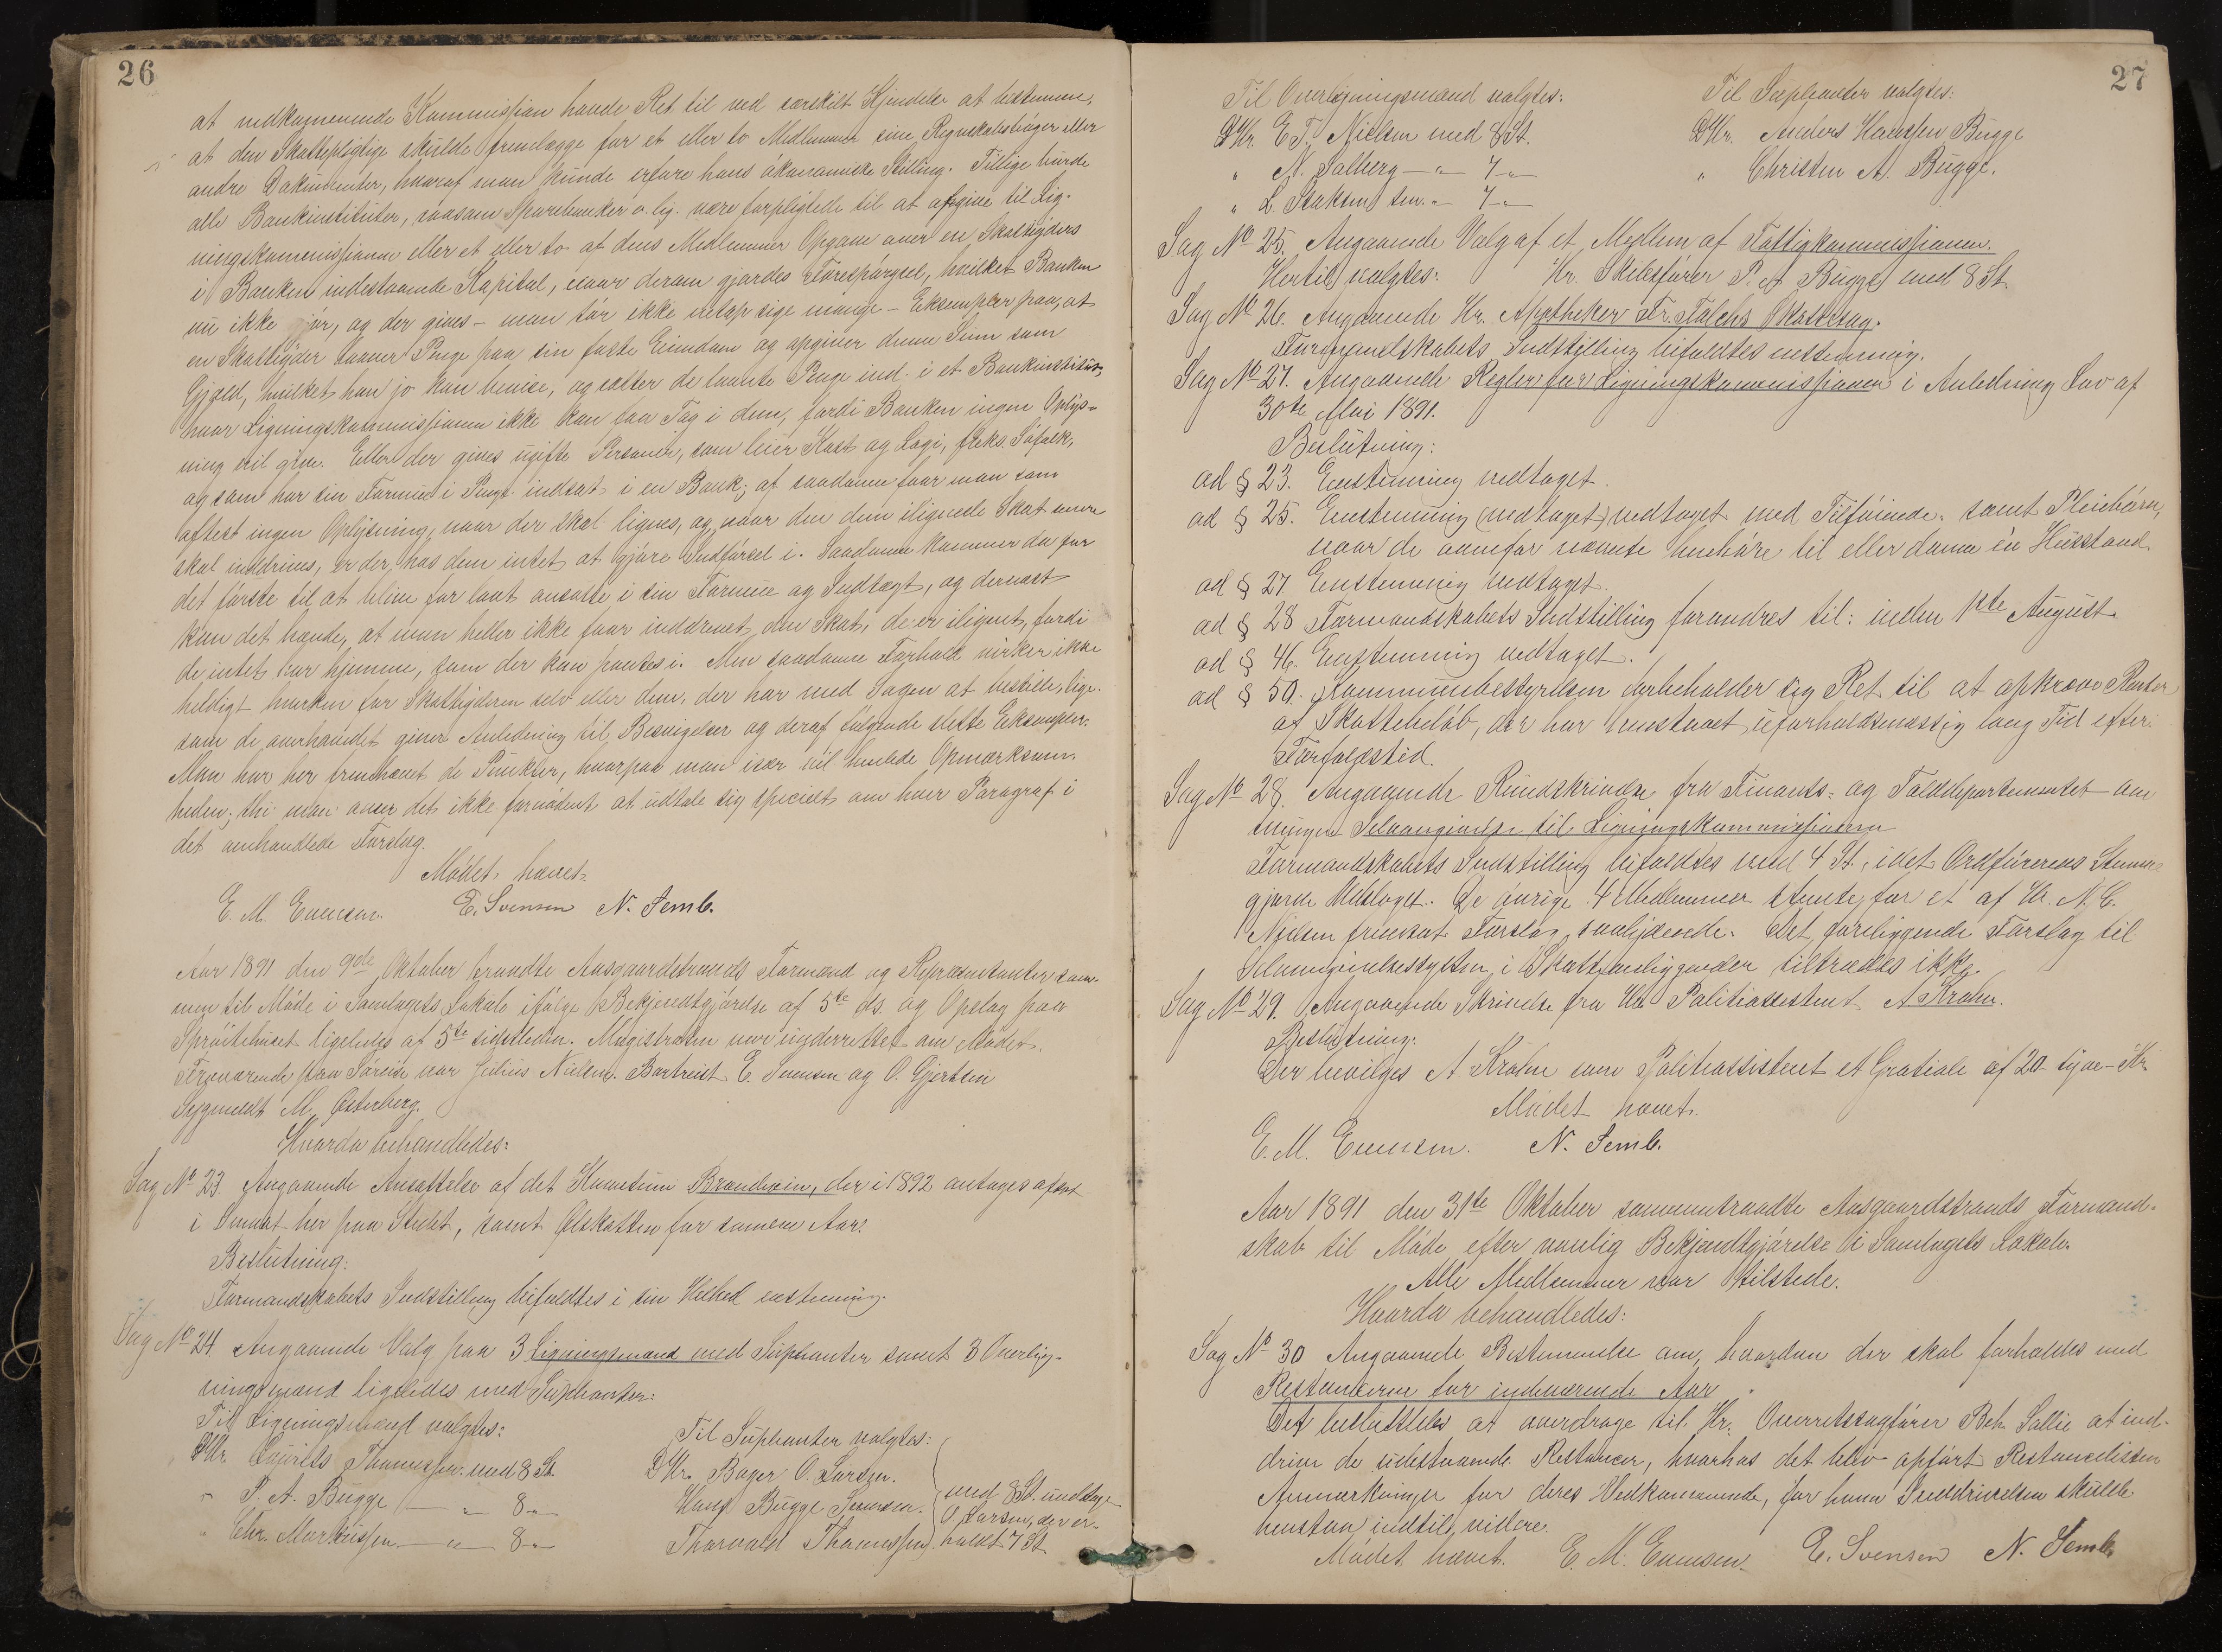 26
at vedkommende Kommission havde Ret til ved særskilt Kjendelse at bestemme,
at den Skattepligtige skulde fremlægge for et eller to Medlemmer sine Regnskabsbøger eller
andre Dokumenter, hvoraf man kunde erfare hans økonomiske Stilling. Tillige burde
alle Bankinstituter, saasom Sparebanker o. lig. være forpligtede til at afgive til Lig-
ningskommissionen eller et eller to af dens Medlemmer Opgave over en Skatteyders
i Banken indestaaende Kapital, naar derom gjordes Forespørgsel, hvilket Banken
nu ikke gjør, og der gives - man tør ikke netop sige mange - Eksempler paa, at
en Skatteyder laaner Penge paa sin faste Eiendom og opgiver denne Sum som
Gjæld, hvilket han jo kan bevise, og sætter de laante Penge ind i et Bankinstitut,
hvor Ligningskommissionen ikke kan faa Tag i dem, fordi Banken ingen Oplys-
ning vil give. Eller der gives ugifte Personer, som leier Kost og Logi, f.eks. Søfolk,
og som har sin Formue i Penge indsat i en Bank; af saadanne faar man som
oftest ingen Oplysning, naar der skal lignes, og naar den dem ilignede Skat
skal inddrives, er der hos dem intet at gjøre Udførsel i. Saadanne kommer da for
det første til at blive for lavt ansatte i sin Formue og Indtægt, og dernæst
kan det hænde, at man heller ikke faar inddrevet den Skat, de er ilignet, fordi
de intet har hjemme, som der kan pantes i. Men saadanne Forhold virker ikke
heldigt hverken for Skatteyderen selv eller dem, der har med Sagen at bestille, lige-
som de overhovedet giver Anledning til Besvigelser og deraf følgende slette Eksempler.
Man har her fremhævet de Punkter, hvorpaa man især vil henlede Opmærksom-
heden; thi man anser det ikke fornødent at udtale sig specielt om hver Paragraf i
det omhandlede Forslag.
Mødet hævet.
E. M. Evensen. E. Svensen N. Semb.
Aar 1891 den 9de Oktober traadte Aasgaardstrands Formænd og Repræsentanter sam-
men til Møde i Samlagets Lokale ifølge Bekjendtgjørelse af 5te ds. og Opslag paa
Sprøitehuset ligeledes af 5te sidstleden. Magistraten var underrettet om Mødet.
Fraværende paa Søreise var Julius Nielsen. Bortreist E. Svensen og O. Gjertsen
Sygmeldt M. Østerberg.
Hvorda behandledes:
Sag No 23 Angaaende Ansættelse af det Kvantum Brændevin, der i 1892 antages afsat
i Smaat her paa Stedet, samt Ølskatten for samme Aar.
Beslutning:
Formandskabets Indstilling bifaldtes i sin Helhed enstemmig.
Sag No 24 Angaaende Valg paa 3 Ligningsmænd med Suplianter samt 3 Overlig-
ningsmænd ligeledes med Suplianter:
Til Ligningsmænd valgtes:
DHr. Laurits Thomessen med 8 St.
" P. A. Bugge — " — 8 "
" Chr. Markussen — " — 8 "
Til Suplianter valgtes:
DHr. Bager O. Larsen.
Hans Bugge Svensen.
Thorvald Thomessen
med 8 St. undtagen
O. Larsen, der er-
holdt 7 St.
27
Til Overligningsmænd valgtes:
DHr. E. T. Nielsen med 8 St.
" N. Salberg — " — 7 "
" L. Isaksen sen. " — 7 "
Til Suplianter valgtes:
DHr. Anders Hanssen Bugge
" Christen A. Bugge.
Sag No 25. Angaaende Valg af et Medlem af Fattigkommissionen.
Hertil valgtes: Hr. Skibsfører P. A. Bugge med 8 St.
Sag No 26. Angaaende Hr. Apotheker Fr. Falchs Skattesag.
Formandskabets Indstilling bifaldtes enstemmig.
Sag No 27. Angaaende Regler for Ligningskommissionen i Anledning Lov af
30te Mai 1891.
Beslutning:
ad § 23. Enstemmig vedtaget.
ad § 25. Enstemmig (vedtaget) vedtaget med Tilføiende: samt Pleiebørn,
naar de ovenfor nævnte henhøre til eller danne én Husstand.
ad § 27 Enstemmig vedtaget.
ad § 28 Formandskabets Indstilling forandres til: inden 1ste August.
ad § 46. Enstemmig vedtaget.
ad § 50. Kommunebestyrelsen forbeholder sig Ret til at opkræve Renter
af Skattebeløb, der har henstaaet uforholdsmæssig lang Tid efter
Forfaldstid.
Sag No 28. Angaaende Rundskrivelse fra Finants- og Tolddepartementet om
tvungen Selvangivelse til Ligningskommissionen
Formandskabets Indstilling bifaldtes med 4 St., idet Ordførerens Stemme
gjorde Udslaget. De øvrige 4 Medlemmer stemte for et af Hr. N. C.
Nielsen fremsat Forslag saalydende: Det foreliggende Forslag til
Selvangivelsespligten i Skatteanliggender tiltrædes ikke.
Sag No 29. Angaaende Skrivelse fra Hr. Politiassistent A. Krohn.
Beslutning.
Der bevilges A. Krohn som Politiassistent et Gratiale af 20 - tyve - Kr.
Mødet hævet.
E. M. Evensen. N. Semb.
Aar 1891 den 31te Oktober sammentraadte Aasgaardstrands Formand-
skab til Møde efter vanlig Bekjendtgjørelse i Samlagets Lokale.
Alle Medlemmer var tilstede.
Hvorda behandledes:
Sag No 30 Angaaende Bestemmelse om, hvordan der skal forholdes med
Restancerne for indeværende Aar.
Det besluttedes at overdrage til Hr. Overretssagfører Sollie at ind-
drive de udestaaende Restancer, hvorhos det blev opført Restancelisten
Anmærkninger for deres Vedkommende, for hvem Inddrivelsen skulde
henstaa indtil videre.
Mødet hævet. E. M. Evensen. E. Svensen N. Semb.